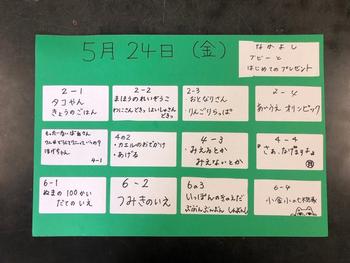 5月24日（金）
なかよし
アビーと
はじめてのプレゼント
2-1
タコやん
きょうのごはん
2-2
まほうのれいぞうこ
わにさんどきっ はいしゃさんどきっ
2-3
・おとなりさん
・りんごりらっぱ
2-4
あいうえ オリンピック
もったいないばあさん
はげちゃん
4-1
4の2
・カエルのおでかけ
・あげる
4-3
・みえるとか
みえないとか
4-4
さぁ、なげますよ
6-1
ぬまの100かい
だての いえ
6-2
つみきのいえ
6の3
いっぽんの木のえだ
ぶぶんぶぶん しゅぶん
6-4
小金小の七不思議